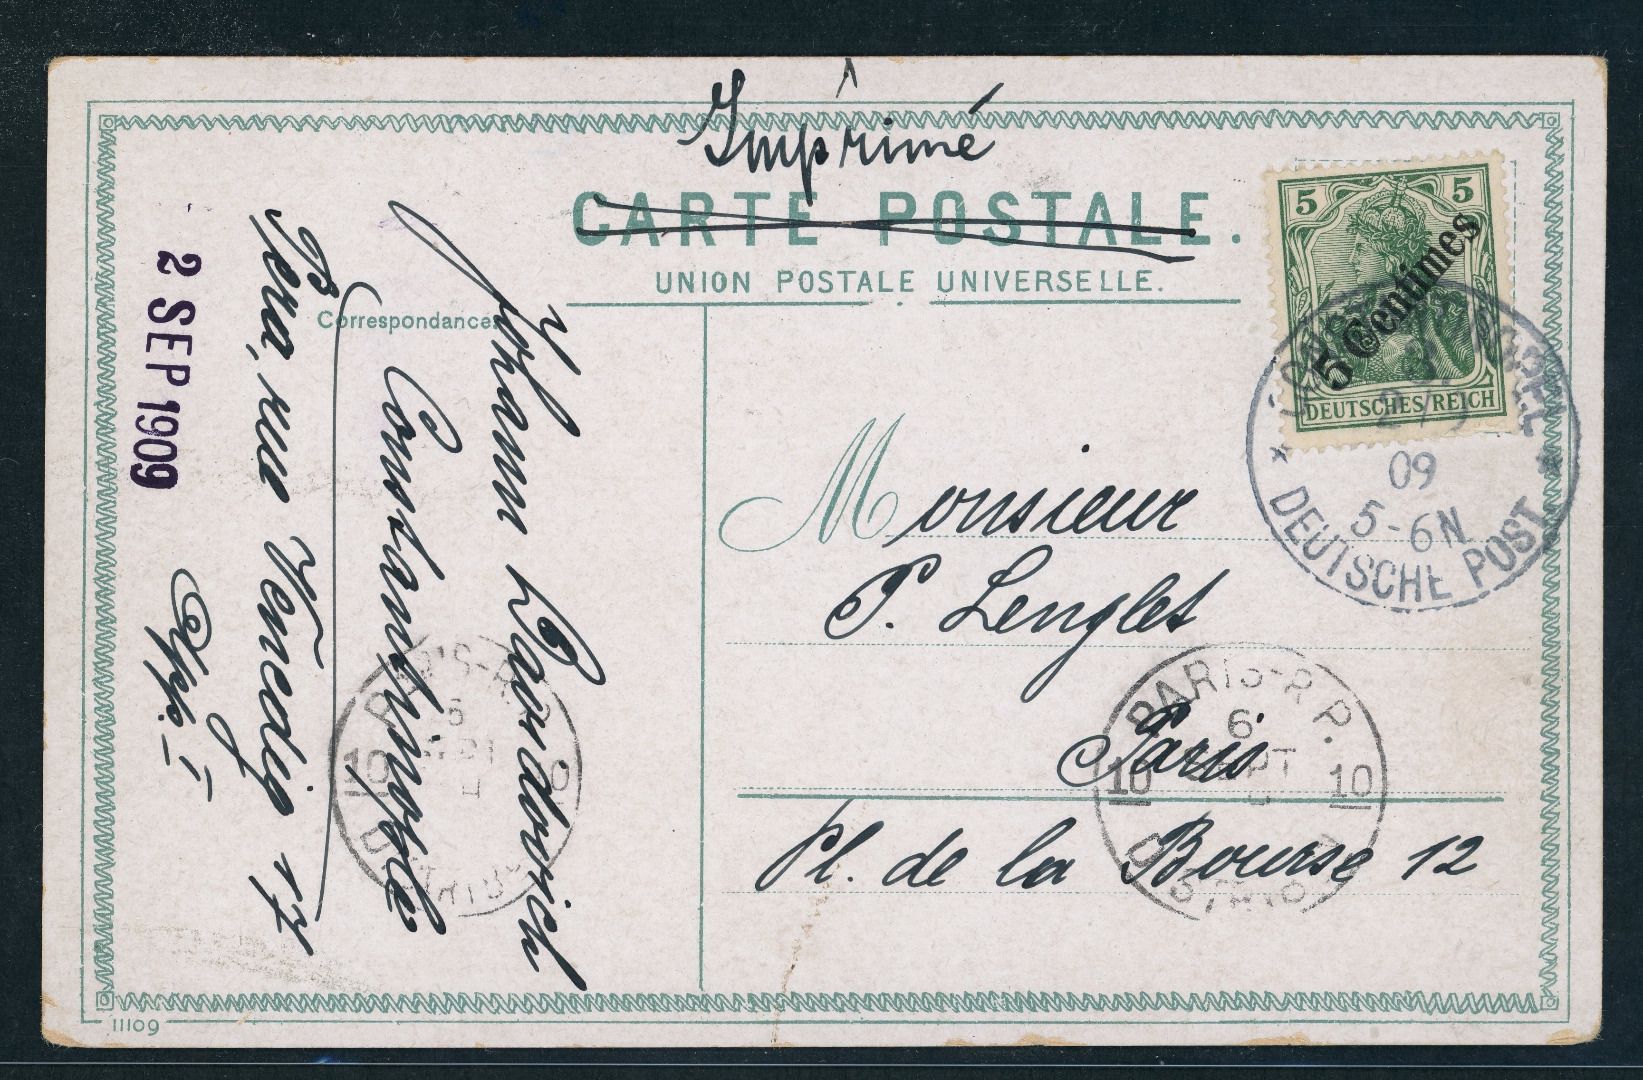 Imprimé
CARTE POSTALE.
UNION POSTALE UNIVERSELLE.
Correspondance
5 5
5 Centimes
DEUTSCHES REICH
09
5-6N
DEUTSCHE POST
Monsieur
P. Lenglet
Paris
Pl. de la Bourse 12
PARIS-R.P.
6
10 10
Johann
Constantinople
Pera, rue Venedig 17
2 SEP 1909
PARIS-R.P.
10
11109